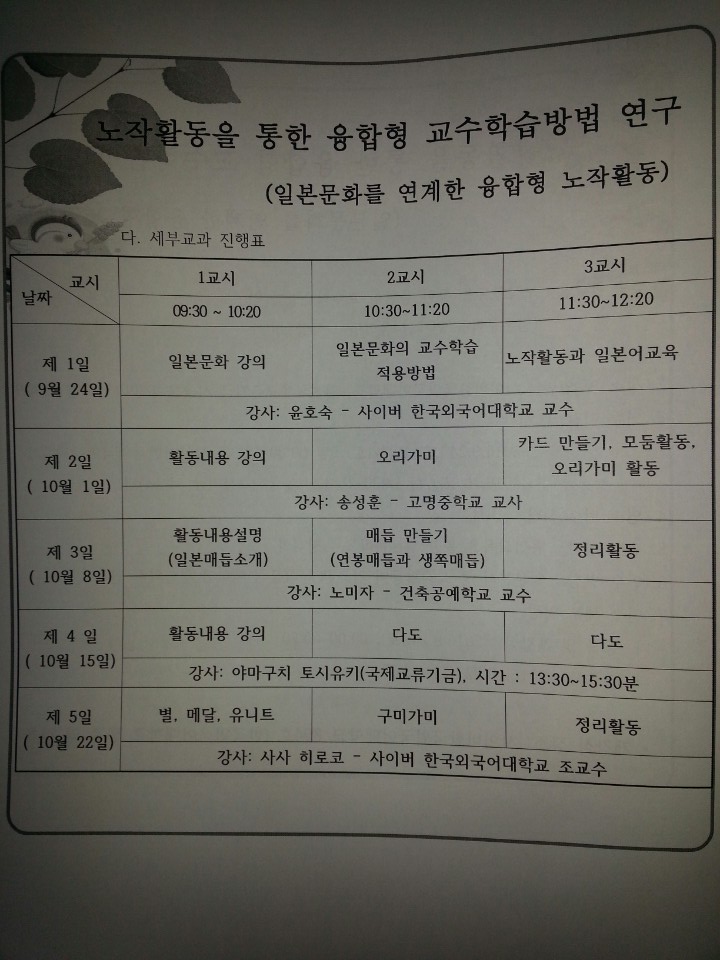 노작활동을 통한 융합형 교수학습방법 연구
(일본문화를 연계한 융합형 노작활동)
다. 세부교과 진행표
교시
날짜
1교시
2교시
3교시
09:30 ~ 10:20
10:30~11:20
11:30~12:20
제 1일
( 9월 24일)
일본문화 강의
일본문화의 교수학습
적용방법
노작활동과 일본어교육
강사: 윤호숙 - 사이버 한국외국어대학교 교수
제 2일
( 10월 1일)
활동내용 강의
오리가미
카드 만들기, 모둠활동,
오리가미 활동
강사: 송성훈 - 고명중학교 교사
제 3일
( 10월 8일)
활동내용설명
(일본매듭소개)
매듭 만들기
(연봉매듭과 생쪽매듭)
정리활동
강사: 노미자 - 건축공예학교 교수
제 4 일
( 10월 15일)
활동내용 강의
다도
다도
강사: 야마구치 토시유키(국제교류기금), 시간 : 13:30~15:30분
제 5일
( 10월 22일)
별, 메달, 유니트
구미가미
정리활동
강사: 사사 히로코 - 사이버 한국외국어대학교 조교수